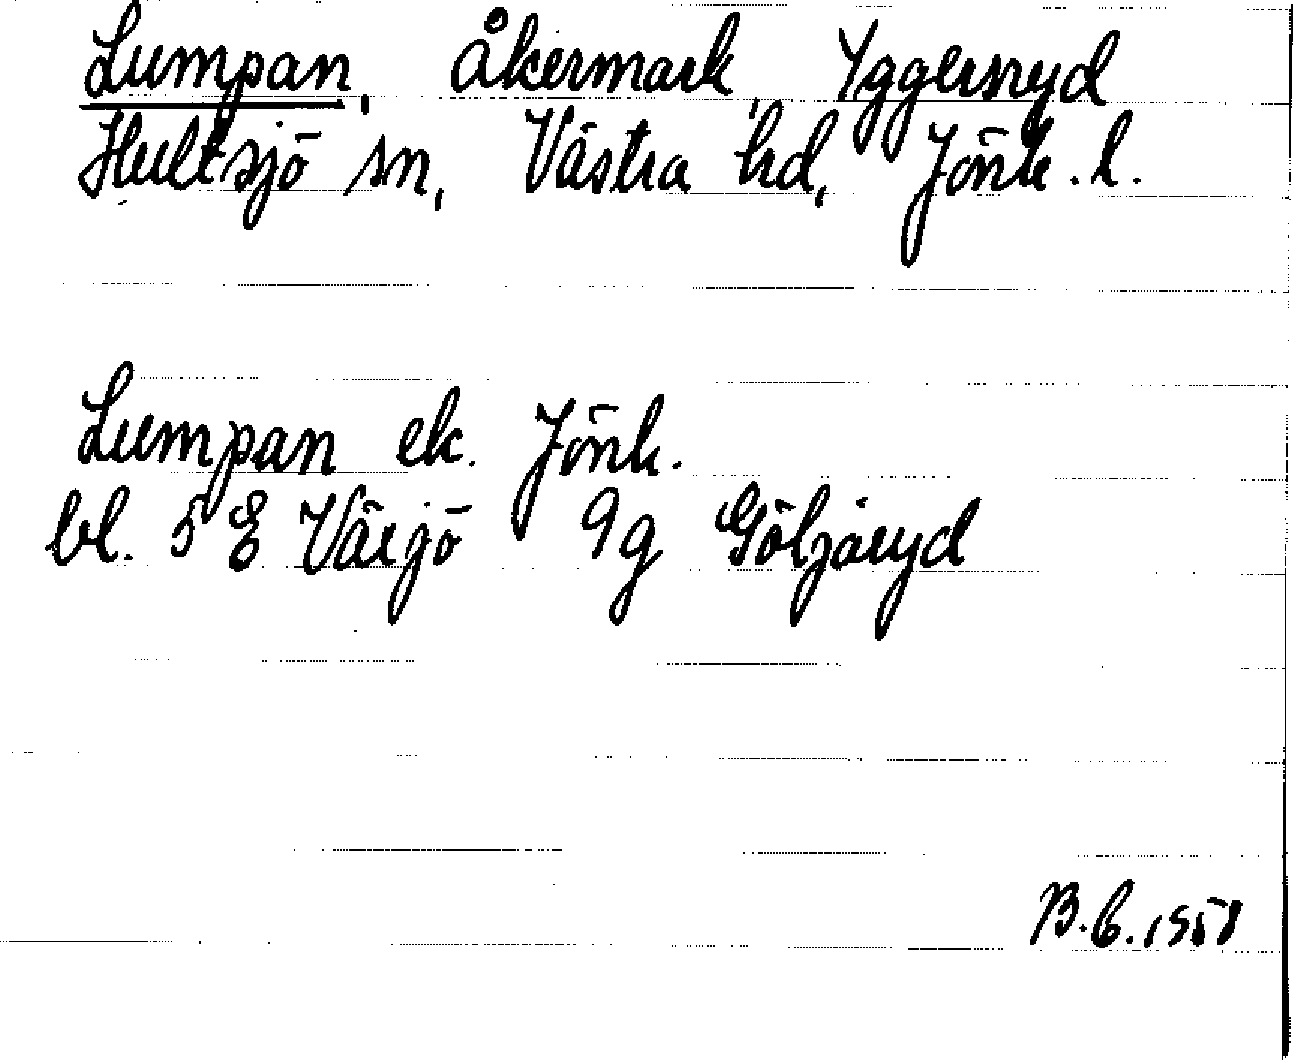 Lumpan, åkermark, Yggersryd
Hultsjö sn, Västra hd, Jönk. l.
Lumpan ek. Jönk.
bl. 5 E Värjö 9g Göljaryd
B.C. 1958